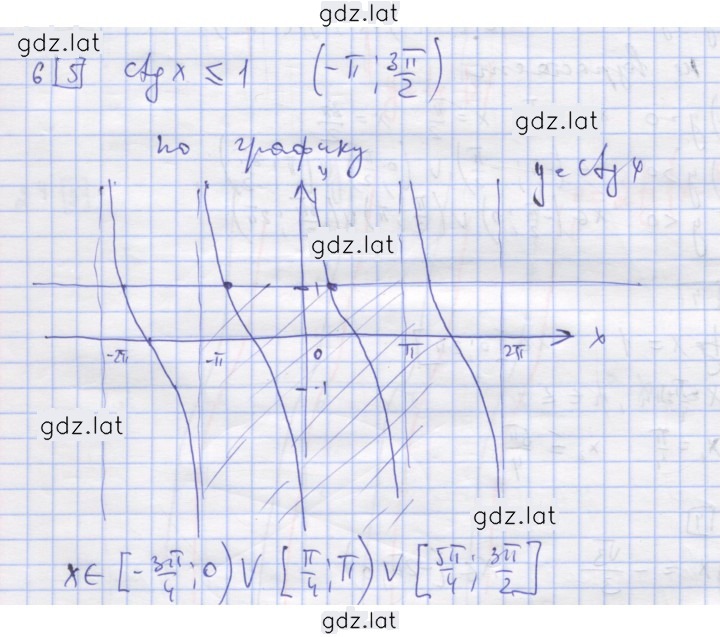 gdz.lat
gdz.lat
6 [5] ctg x ≤ 1 (-π ; 3π/2)
gdz.lat
по графику
y = ctg x
y
gdz.lat
1
-2π -π 0 π 2π x
-1
gdz.lat
gdz.lat
x ∈ [-3π/4 ; 0) ∨ [π/4 ; π) ∨ [5π/4 ; 3π/2]
gdz.lat